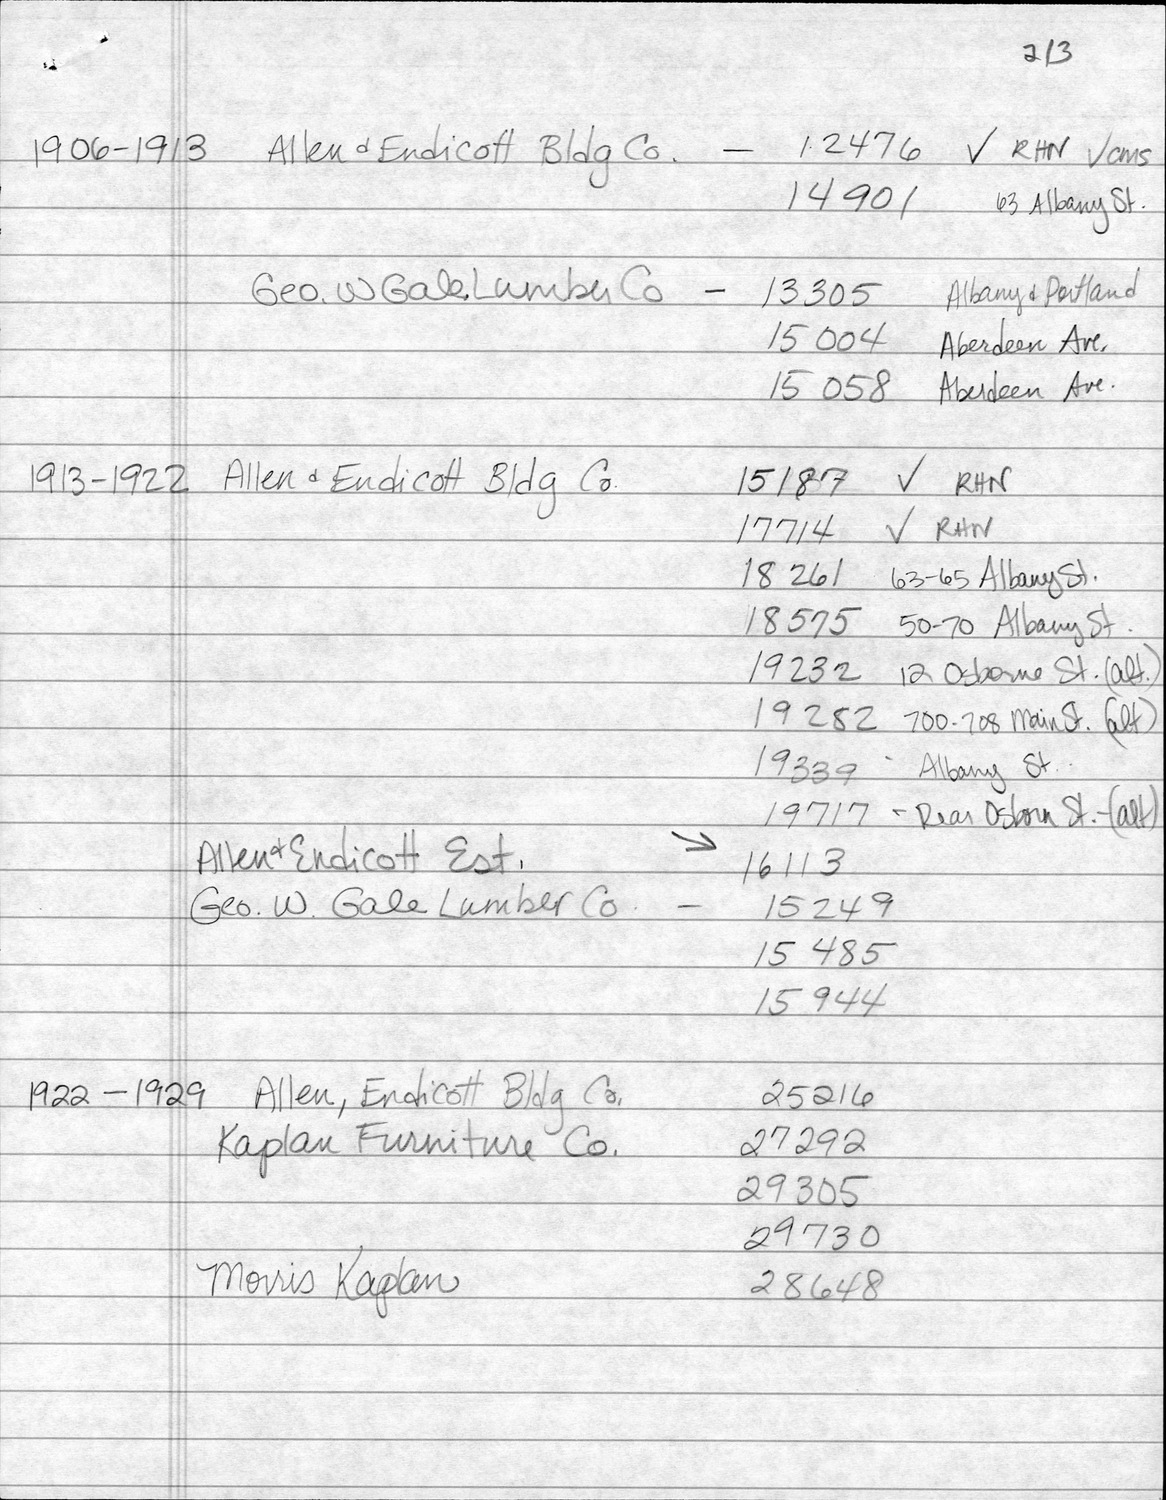 2/3
1906-1913 Allen & Endicott Bldg Co. - 12476 ✓ RHN ✓cms
14901 63 Albany St.
Geo. W Gale Lumber Co - 13305 Albany & Portland
15004 Aberdeen Ave.
15058 Aberdeen Ave.
1913-1922 Allen & Endicott Bldg Co. 15187 ✓ RHN
17714 ✓ RHN
18261 63-65 Albany St.
18575 50-70 Albany St.
19232 12 Osborne St. (alt.)
19282 700-708 Main St. (alt)
19339 - Albany St.
19717 - Rear Osborn St. - (alt)
Allen & Endicott Est. → 16113
Geo. W. Gale Lumber Co. - 15249
15485
15944
1922-1929 Allen, Endicott Bldg Co. 25216
Kaplan Furniture Co. 27292
29305
29730
Morris Kaplan 28648